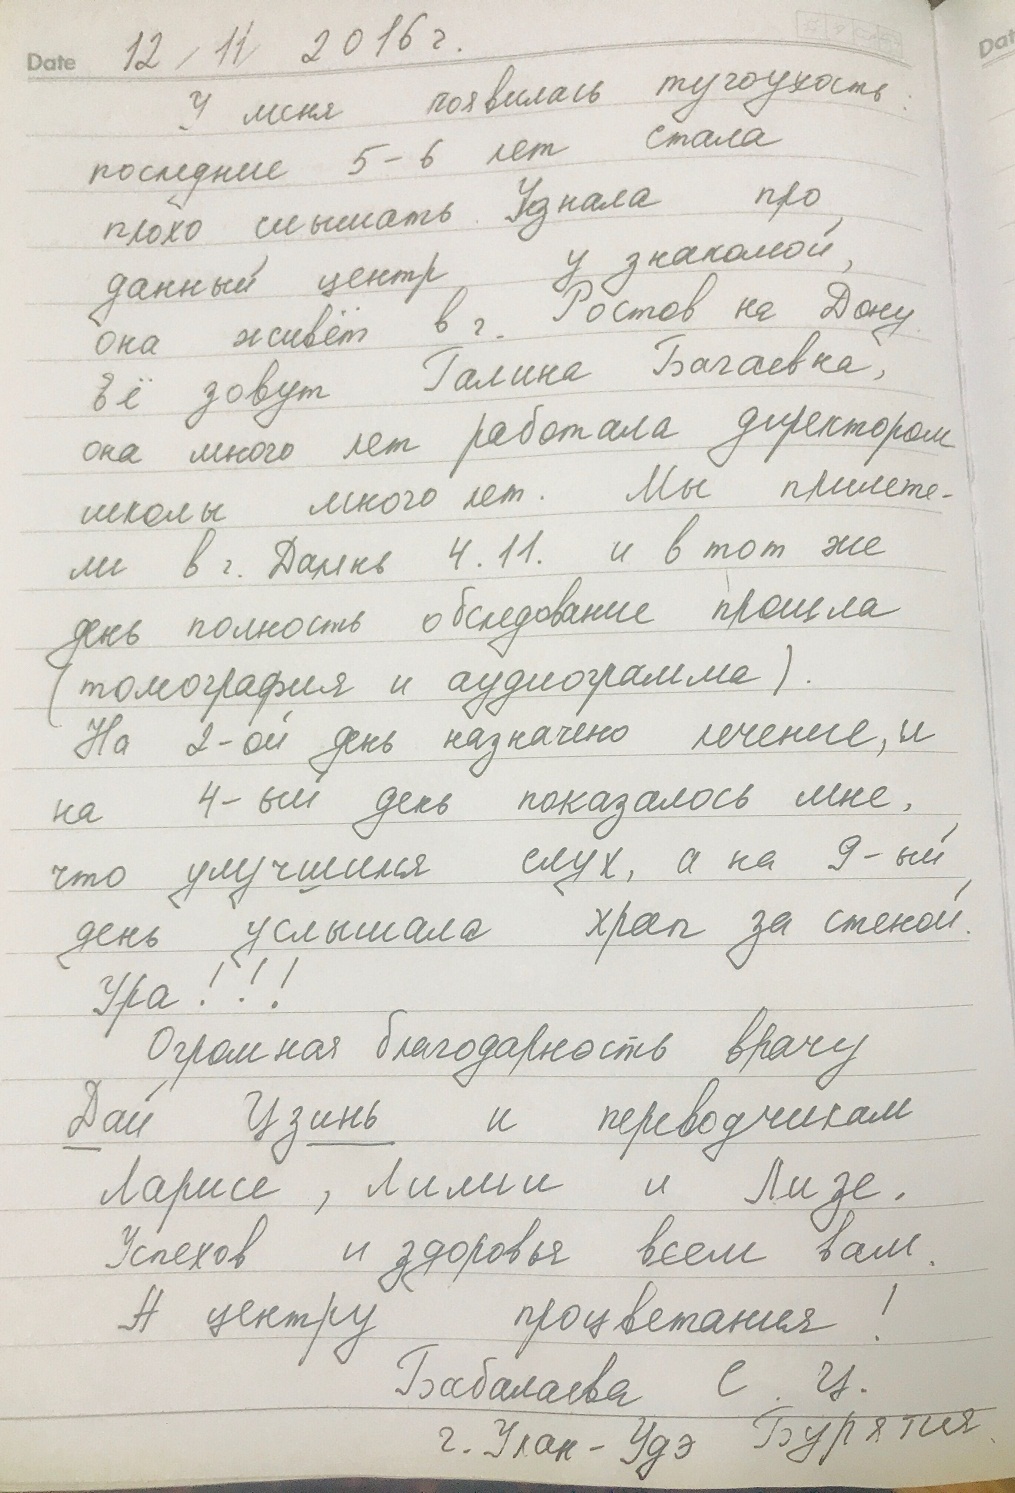 Date 12/11 2016 г.
У меня появилась тугоухость
последние 5-6 лет стала
плохо слышать. Узнала про
данный центр у знакомой,
она живёт в г. Ростов на Дону
Её зовут Галина Багаевна,
она много лет работала директором
школы много лет. Мы прилете-
ли в г. Далянь 4.11. и в тот же
день полность обследование прошла
(томография и аудиограмма).
На 2-ой день назначено лечение, и
на 4-ый день показалось мне,
что улучшился слух, а на 9-ый
день услышала храп за стеной.
Ура!!!
Огромная благодарность врачу
Дай Цзинь и переводчикам
Ларисе, Лилии и Лизе.
Успехов и здоровья всем вам.
А центру процветания!
С. Ц.
г. Улан-Удэ Бурятия.